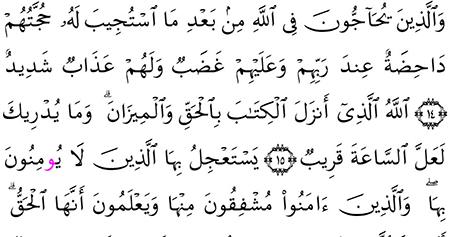 وَٱلَّذِينَ يُحَآجُّونَ فِى ٱللَّهِ مِنۢ بَعْدِ مَا ٱسْتُجِيبَ لَهُۥ حُجَّتُهُمْ
دَاحِضَةٌ عِندَ رَبِّهِمْ وَعَلَيْهِمْ غَضَبٌ وَلَهُمْ عَذَابٌ شَدِيدٌ
﴿١٤﴾ ٱللَّهُ ٱلَّذِىٓ أَنزَلَ ٱلْكِتَٰبَ بِٱلْحَقِّ وَٱلْمِيزَانَ ۗ وَمَا يُدْرِيكَ
لَعَلَّ ٱلسَّاعَةَ قَرِيبٌ ﴿١٥﴾ يَسْتَعْجِلُ بِهَا ٱلَّذِينَ لَا يُومِنُونَ
بِهَا ۖ وَٱلَّذِينَ ءَامَنُوا۟ مُشْفِقُونَ مِنْهَا وَيَعْلَمُونَ أَنَّهَا ٱلْحَقُّ ۗ